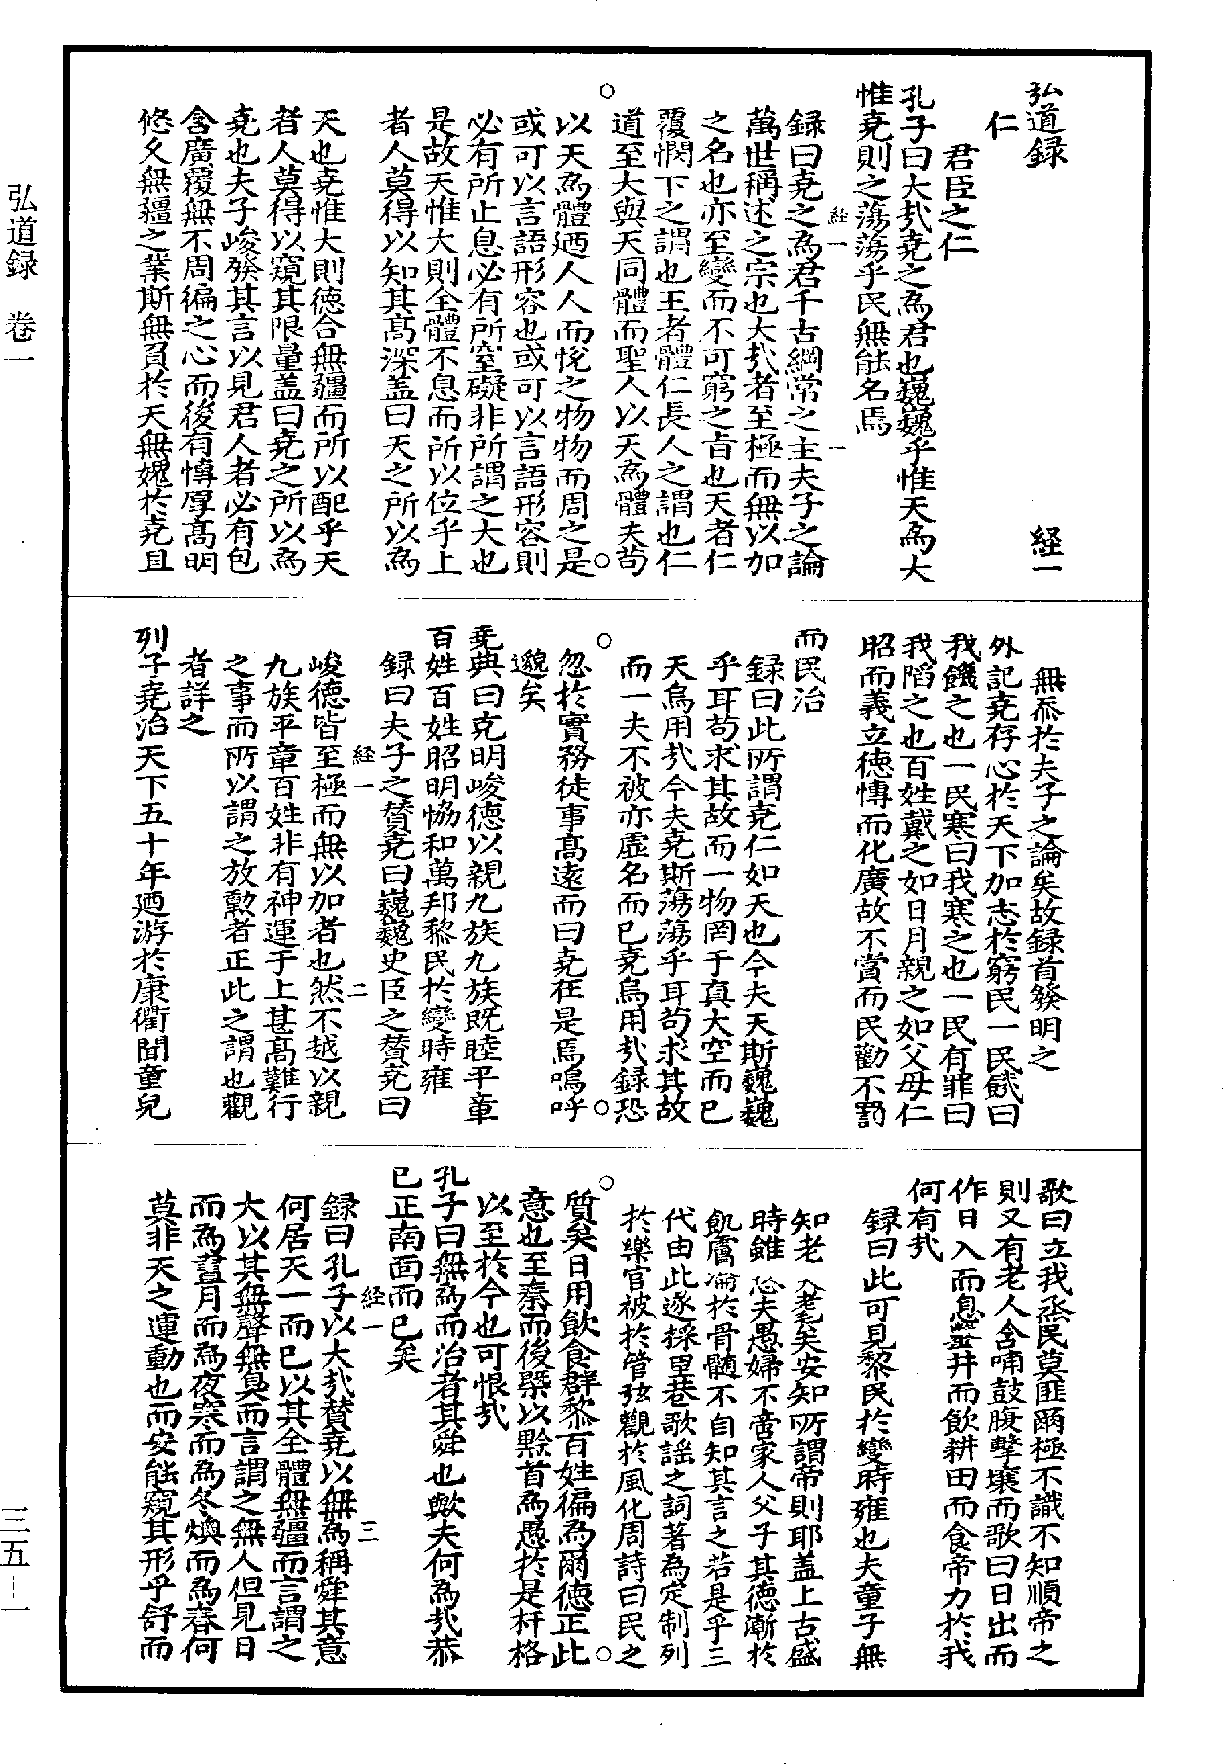 弘道録　經一
仁
君臣之仁
孔子曰大㦲堯之為君也巍巍乎惟天為大
惟堯則之蕩蕩乎民無能名焉
録曰堯之為君千古綱常之主夫子之論
經一　一
萬世稱述之宗也大㦲者至極而無以加
之名也亦至變而不可窮之㫖也天者仁
覆憫下之謂也王者體仁長人之謂也仁
道至大與天同體而聖人以天為體夫苟
以天為體廼人人而悅之物物而周之是
或可以言語形容也或可以言語形容則
必有所止息必有所窒礙非所謂之大也
是故天惟大則全體不息而所以位乎上
者人莫得以知其髙深盖曰天之所以為
天也堯惟大則德合無疆而所以配乎天
者人莫得以窺其限量盖曰堯之所以為
堯也夫子峻發其言以見君人者必有包
含廣覆無不周徧之心而後有慱厚髙明
悠久無疆之業斯無負於天無媿於堯且
無忝於夫子之論矣故録首發明之
外記堯存心於天下加志於窮民一民餓曰
我饑之也一民寒曰我寒之也一民有罪曰
我陷之也百姓戴之如日月親之如父母仁
昭而義立德慱而化廣故不賞而民勸不罰
而民治
録曰此所謂堯仁如天也今夫天斯巍巍
乎耳苟求其故而一物罔于真大空而已
天烏用㦲今夫堯斯蕩蕩乎耳苟求其故
而一夫不被亦虚名而已堯烏用㦲録恐
忽於實務徒事髙遠而曰堯在是焉嗚呼
邈矣
堯典曰克明峻德以親九族九族既睦平章
百姓百姓昭明恊和萬邦黎民於變時雍
録曰夫子之賛堯曰巍巍史臣之賛堯曰
經一　二
峻德皆至極而無以加者也然不越以親
九族平章百姓非有神運于上甚髙難行
之事而所以謂之放勲者正此之謂也觀
者詳之
列子堯治天下五十年廼游於康衢聞童兒
歌曰立我烝民莫匪爾極不識不知順帝之
則又有老人含哺鼓腹擊壤而歌曰日出而
作日入而息鑿井而飲耕田而食帝力於我
何有㦲
録曰此可見黎民於變時雍也夫童子無
知老人耄矣安知所謂帝則耶盖上古盛
時雖愚夫愚婦不啻家人父子其德漸於
肌膚淪於骨髓不自知其言之若是乎三
代由此逐採里巷歌謡之詞著為定制列
於樂官被於管弦觀於風化周詩曰民之
質矣日用飲食群黎百姓徧為爾德正此
意也至秦而後槩以黔首為愚於是杆格
以至於今也可恨㦲
孔子曰無為而治者其舜也歟夫何為㦲恭
已正南面而已矣
録曰孔子以大㦲賛堯以無為稱舜其意
經一　三
何居天一而已以其全體無疆而言謂之
大以其無聲無臭而言謂之無人但見日
而為晝月而為夜寒而為冬燠而為春何
莫非天之運動也而安能窺其形乎舒而
弘道録　卷一
三五—一